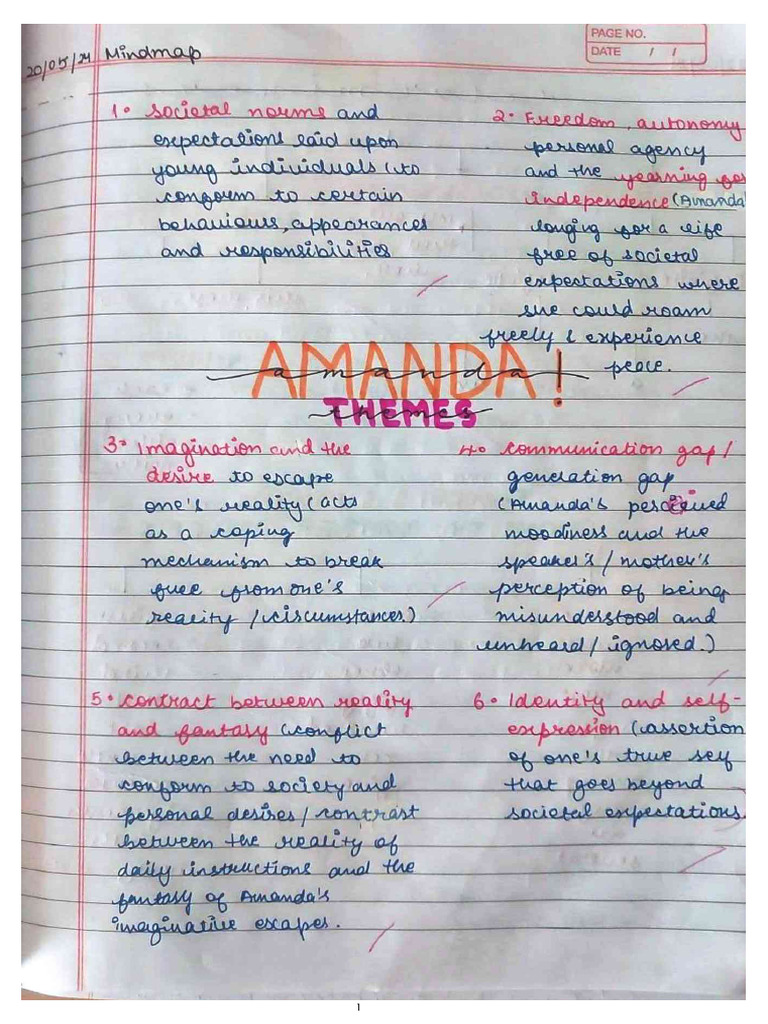 PAGE NO.
DATE / /
20/05/24 Mindmap
1. Societal norms and
expectations laid upon
young individuals (to
conform to certain
behaviours, appearances
and responsibilities
2. Freedom, autonomy
personal agency
and the yearning for
independence (Amanda's
longing for a life
free of societal
expectations where
she could roam
freely & experience
peace.
AMANDA!
amanda
THEMES
themes
3. Imagination and the
desire to escape
one's reality (acts
as a coping
mechanism to break
free from one's
reality / circumstances.)
4. Communication gap /
generation gap
(Amanda's perceived
moodiness and the
speaker's / mother's
perception of being
misunderstood and
unheard / ignored.)
5. Contract between reality
and fantasy (conflict
between the need to
conform to society and
personal desires / contrast
between the reality of
daily instructions and the
fantasy of Amanda's
imaginative escapes.
6. Identity and self-
expression (assertion
of one's true self
that goes beyond
societal expectations
1